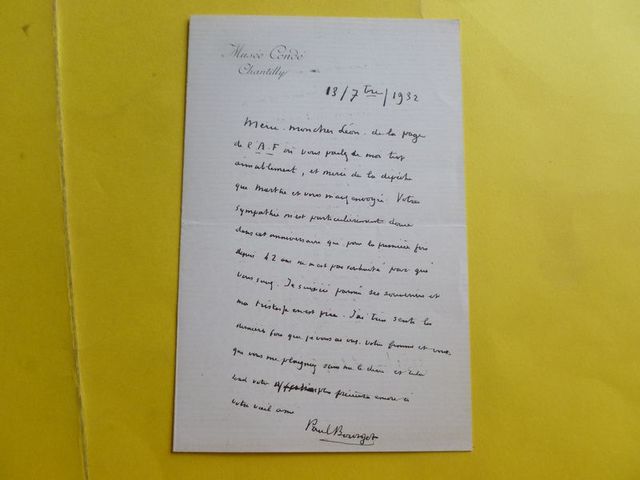 Musée Condé
Chantilly
13/7bre/1932
Merci, mon cher Léon, de la page
de l'A.F où vous parlez de moi trop
aimablement, et merci de la dépêche
que Marthe et vous m'avez envoyée. Votre
sympathie m'est particulièrement douce
dans cet anniversaire que pour la première fois
depuis 42 ans ne m'est pas souhaité par qui
vous savez. Je survis parmi ses souvenirs et
ma tristesse est pire. J'ai très senti la
dernière fois que je vous ai vus, votre femme et vous,
que vous me plaigniez sans me le dire et cela
rend votre plus précieuse encore à
votre vieil ami
Paul Bourget